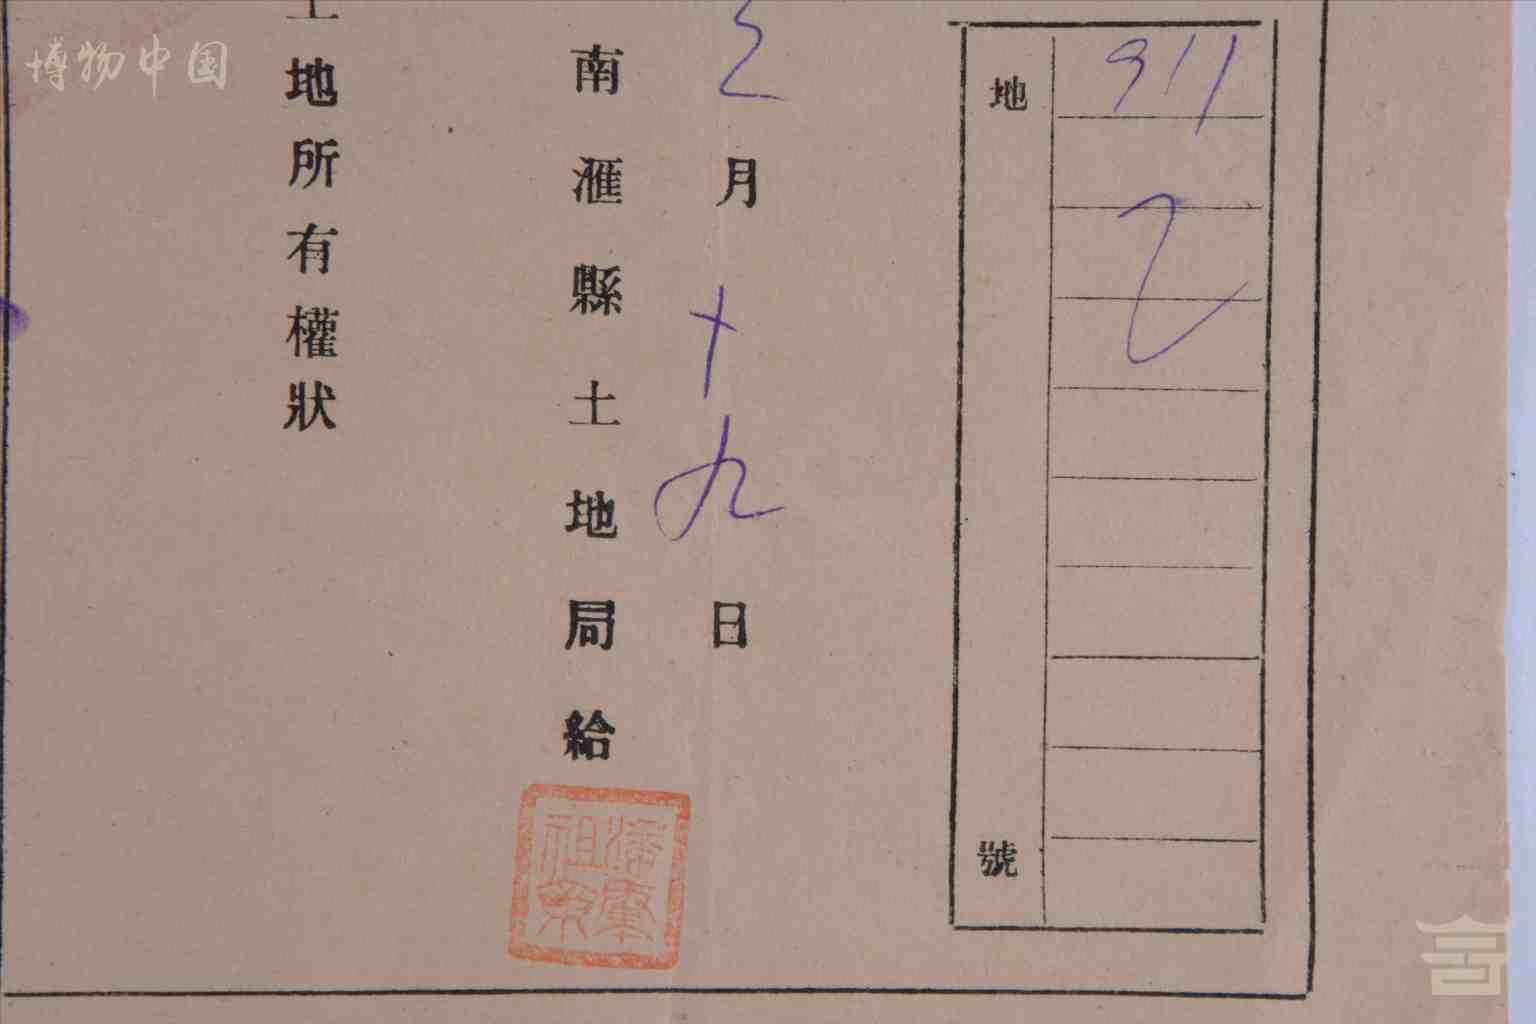 博物中国
地
號
911
乙
月十九日
南滙縣土地局給
土地所有權狀